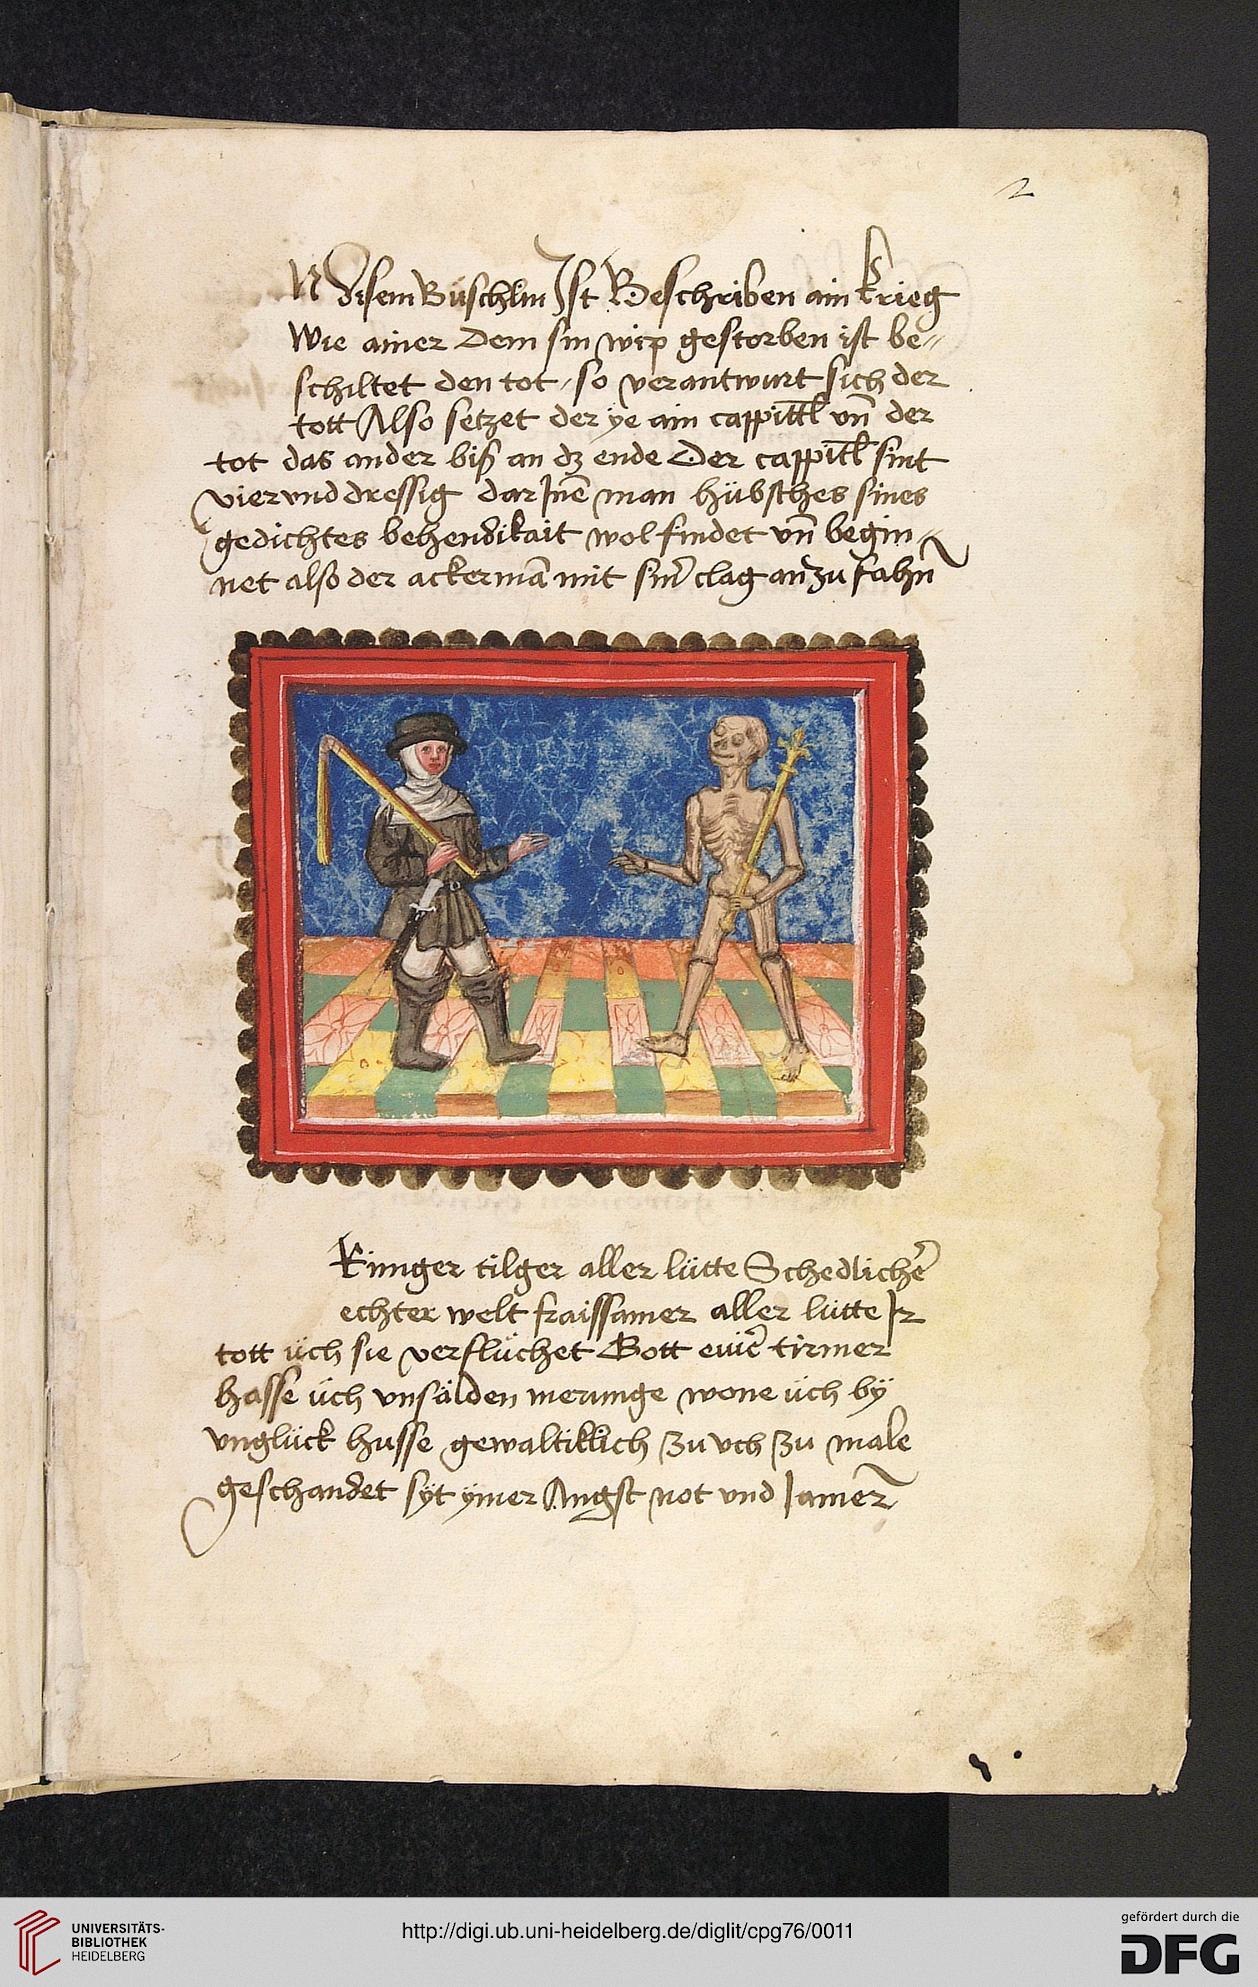 2
N disem Büschlin Ist Beschriben ain krieg
Wie ainer Dem sin wip gestorben ist be„
schiltet den tot / so verantwurt sich der
tott Also setzet der ye ain cappittl̄ vn̄ der
tot das ander biß an dz ende Der cappitl̄ sint
vier vnd dressig dar Jnē man hübsches sines
gedichtes behendikait wol findet vn̄ begin„
net also der ackermā mit sinr̄ clag an zu fahn
Grimger tilger aller lütte Schedlichē
echter welt fraissamer aller lütte Ir
tott üch sie verflüchet Gott eẅer tirmer
hasse üch vnsälden merunge wone üch bÿ
vnglück husse gewaltiklich zu vch zu male
geschandet sÿt ÿmer Angst not vnd Jamer
UNIVERSITÄTS-
BIBLIOTHEK
HEIDELBERG
http://digi.ub.uni-heidelberg.de/diglit/cpg76/0011
gefördert durch die
DFG